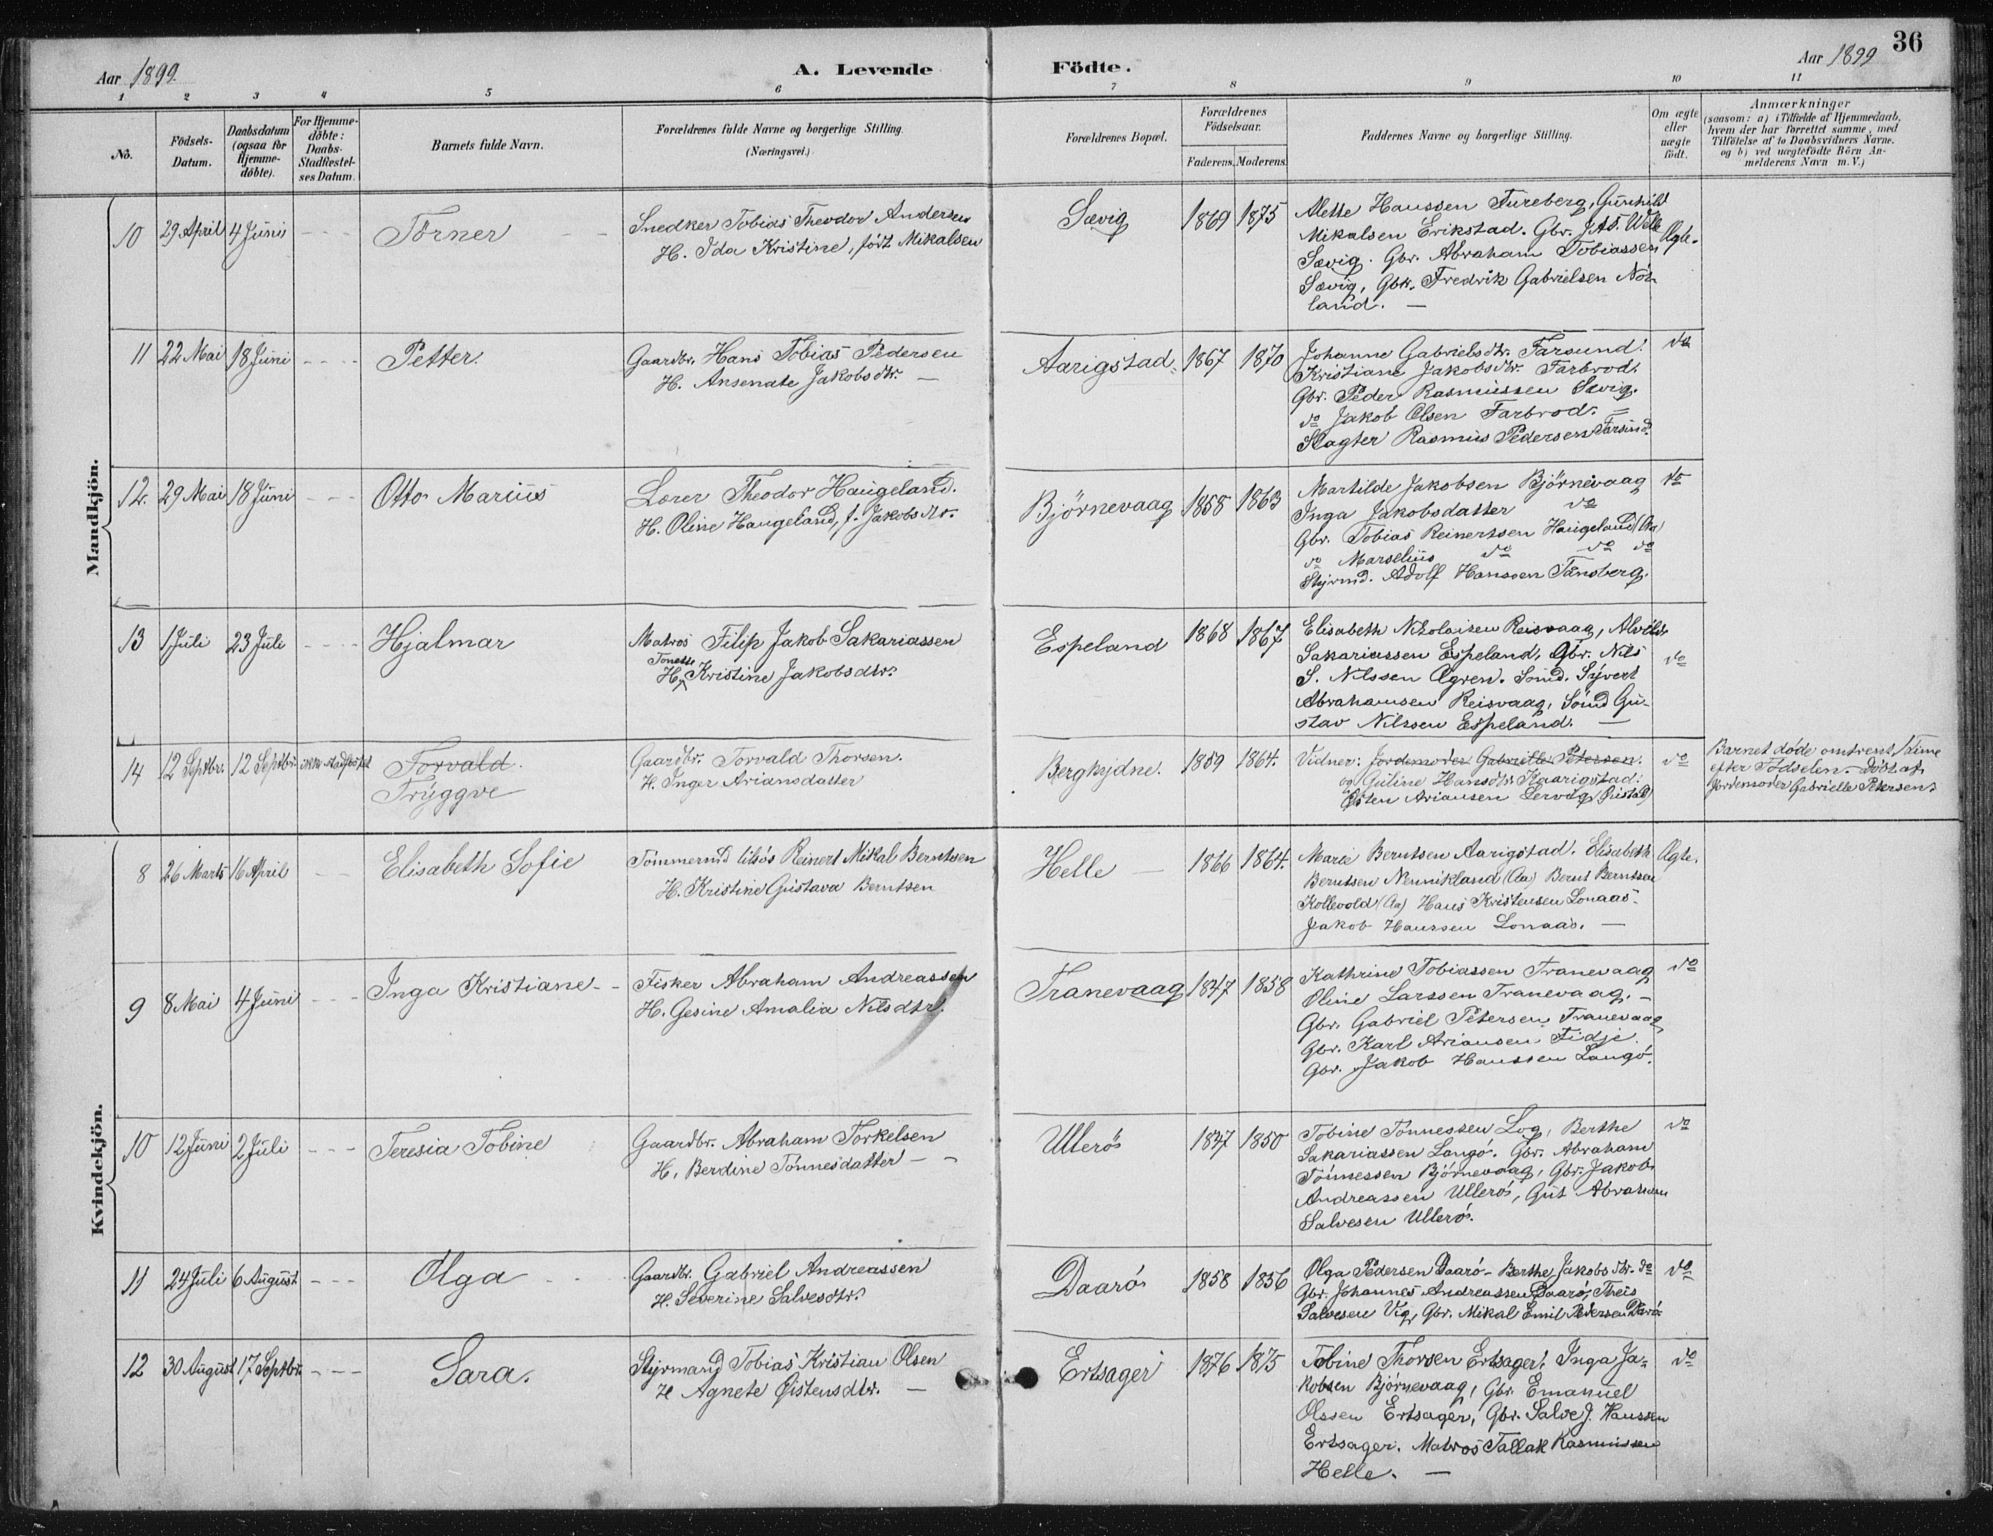 36
Aar 1899.
A. Levende Födte.
Aar 1899
1 2 3 4 5 6 7 8 9 10 11
No.
Födsels-Datum.
Daabsdatum (ogsaa for Hjemme-döbte).
For Hjemme-döbte: Daabs-Stadfæstel-ses Datum.
Barnets fulde Navn.
Forældrenes fulde Navne og borgerlige Stilling. (Næringsvei.)
Forældrenes Bopæl.
Forældrenes Födselsaar.
Faderens. Moderens.
Faddernes Navne og borgerlige Stilling.
Om ægte eller uægte födt.
Anmærkninger
(saasom: a) i Tilfælde af Hjemmedaab,
hvem der har forrettet samme, med
Tilföielse af to Daabsvidners Navne,
og b) ved uægtefödte Börn An-
melderens Navn m.V.)
Mandkjön.
10 29 April 4 Juni - - - Torner
Snedker Tobias Theodor Andersen
H. Ida Kristine, født Mikalsen
Sævig 1869 1875
Alette Hanssen Fureberg, Gunhild
Mikalsen Erikstad. Gbr.
Sævig. Gbr. Abraham Tobiassen
Sævig, Gbr. Fredrik Gabrielsen Nor-
land. —
Ægte.
11 22 Mai 18 Juni - - - Petter.
Gaardbr. Hans Tobias Pedersen
H. Ansenate Jakobsdtr. —
Aarigstad. 1867 1870
Johanne Gabrielsdtr. Farsund.
Kristiane Jakobsdtr. Farbrod.
Gbr. Peder Rasmussen Sævig.
do Jakob Olsen Farbrod. =
Slagter Rasmus Pedersen Farsund.
do
12. 29 Mai 18 Juni - - - Otto Marius
Lærer Theodor Haugeland.
H. Oline Haugeland, f. Jakobsdtr.
Bjørnevaag 1858 1863
Martilde Jakobsen Bjørnevaag
Inga Jakobsdatter do
Gbr. Tobias Reinertsen Haugeland (Aa)
do Marselius do do do
Styrmd. Adolf Hanssen Tønsberg.
do
13 1 Juli 23 Juli - - - Hjalmar
Matros Filip Jakob Sakariassen
Tonette
H. Kristine Jakobsdtr.
Espeland 1868 1867
Elisabeth Nikolaisen Reisvaag, Alvilde
Sakariassen Espeland, Gbr. Nils
S. Nilssen Øgren. Sømd. Syvert
Abrahamsen Reisvaag, Sømd Gu-
stav Nilssen Espeland. —
do
14 12 Septbr. 12 Septbr. ikke stadfæstet Torvald.
Tryggve
Gaardbr. Torvald Thorsen.
H. Inger Ariansdatter
Bergksjdne. 1859 1864.
Vidner: Jordemoder Gabrielle Petersen.
og Guline Hansdtr. Kaarigstad.
Østen Ariansen Lervig
do
Barnet døde omtrent 1 Time
efter Fødselen. Døbt af
Jordemoder Gabrielle Petersen.
Kvindekjön.
8 26 Marts 16 April - - Elisabeth Sofie
Tømmermd Reinert Mikal Berntsen
H. Kristine Gustava Berntsen
Helle — 1866 1864.
Marie Berntsen Aarigstad. Elisabeth
Berntsen Nennikland (Aa) Bernt Berntsen
Kollevold (Aa) Hans Kristensen Lonaas.
Jakob Hanssen Lonaas. —
Ægte.
9 8 Mai 4 Juni - - - Inga Kristiane - -
Fisker Abraham Andreassen
H. Gesine Amalia Nilsdtr.
Tranevaag 1847 1858
Kathrine Tobiassen Tranevaag
Oline Larssen Tranevaag. —
Gbr. Gabriel Petersen Tranevaag
Gbr. Karl Ariansen Fidje.
Gbr. Jakob Hanssen Langø.
do
10 12 Juni 2 Juli - - - Teresia Tobine
Gaardbr. Abraham Torkelsen
H. Berdine Tønnesdatter — —
Ullerøs 1847 1850
Tobine Tønnessen Log, Berthe
Sakariassen Langø. Gbr. Abraham
Tønnessen Bjørnevaag, Gbr. Jakob
Andreassen Ullerøs, Gut Abraham
Salvesen Ullerøs.
do
11 24 Juli 6 August - - - Olga - - -
Gaardbr. Gabriel Andreassen
H. Severine Salvesdtr.
Daarø 1858 1856
Olga Pedersen Daarø - Berthe Jakobsdtr. do
Gbr. Johannes Andreassen Daarø, Theis
Salvesen Vig, Gbr. Mikal Emil Pedersen Daarø
do
12 30 August 17 Septbr. - - - Sara.
Styrmand Tobias Kristian Olsen
H Agnete Øistensdtr. —
Ertsager 1876 1875
Tobine Thorsen Ertsager, Inga Ja-
kobsen Bjørnevaag, Gbr. Emanuel
Olssen Ertsager, Gbr. Salve J. Hanssen
Ertsager. Matros Tallak Rasmussen
Helle. —
do